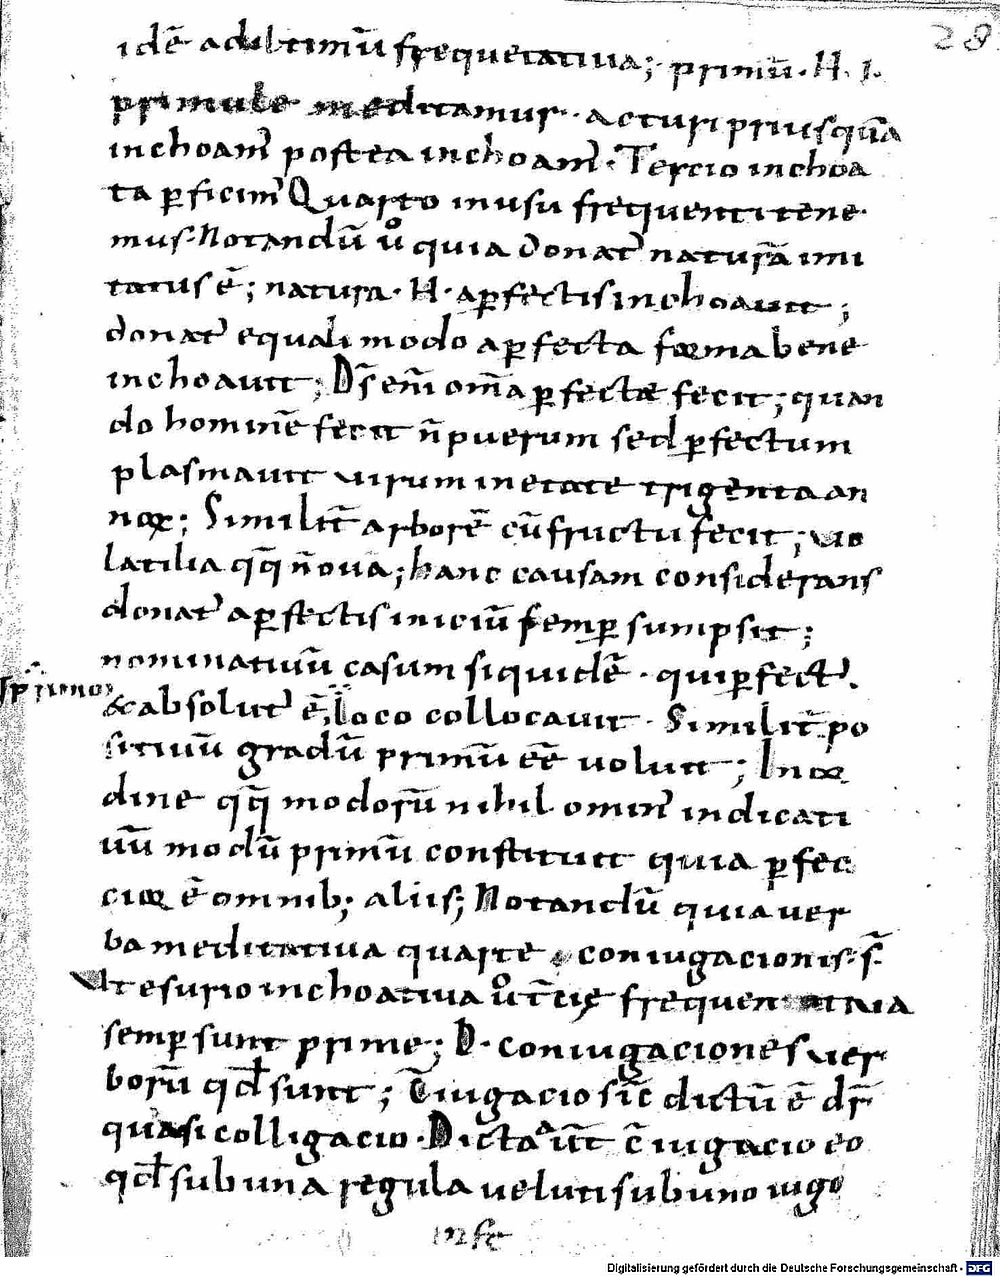 28
idē ad ultimū frequetatiua; primū. H. I.
primule meditamur. acturi priusquā
inchoam̄ postea inchoam̄. Tercio inchoa
ta ꝑficim̄ Quarto in usu frequenti tene
mus. Notandū ů quia donat᾽ naturā imi
tatus ē; natura. H. a ꝑfectis inchoauit;
donat᾽ equali modo a ꝑfecta forma bene
inchoauit; D̄s eni᷉ om̄a ꝑfectæ fecit; quan
do hominē fecit n̄ puerum sed ꝑfectum
plasmauit uirum in etate trigenta an
noꝝ; Similit̄ arborē cū fructu fecit; uo
latilia qq̄ n̄ oua; hanc causam considerans
donat᾽ a ꝑfectis iniciū semꝑ sumpsit;
nominatiuū casum siquidē. qui ꝑfect᾽.
in primo
& absolut᾽ ē, loco collocauit. Similit̄ po
sitiuū gradū primū eē uoluit; In or
dine qq̄ modorū nihil omin᾽ indicati
uū modū primū constituit quia ꝑfec
cior ē omnib; aliis; Notandū quia uer
ba meditatiua quarte coniugacionis s̄
ut esurio inchoatiua ů t̄cię frequentatiua
semꝑ sunt prime; D. coniugaciones uer
borū qd̄ sunt; C̄iugacio sic̄ dictū ē dr̄
quasi colligacio. Dicta aut̄ c̄iugacio eo
qd̄ sub una regula ueluti sub uno iugo
Digitalisierung gefördert durch die Deutsche Forschungsgemeinschaft - DFG